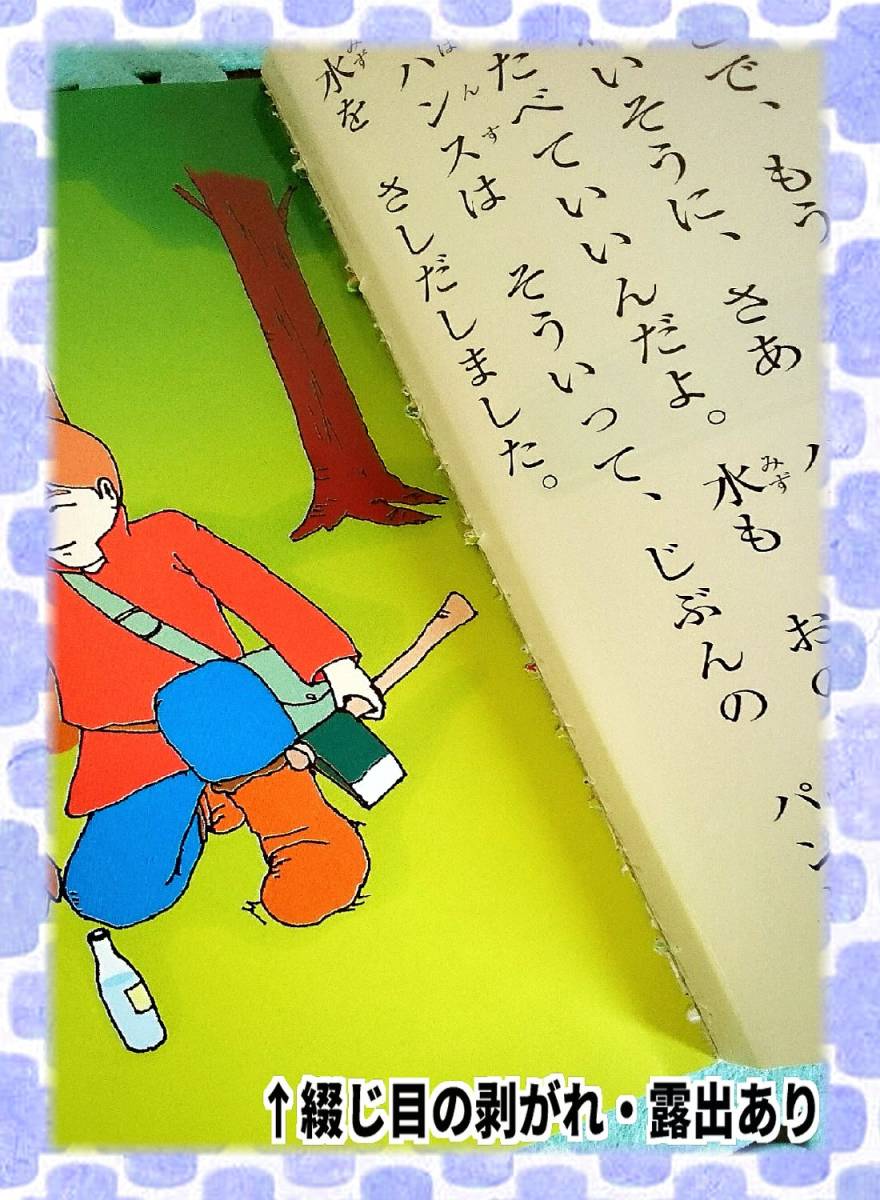 で、もう
いそうに、さあ
たべていいんだよ。水も お
ハンスは そういって、じぶんの パン
水を さしだしました。
↑綴じ目の剥がれ・露出あり